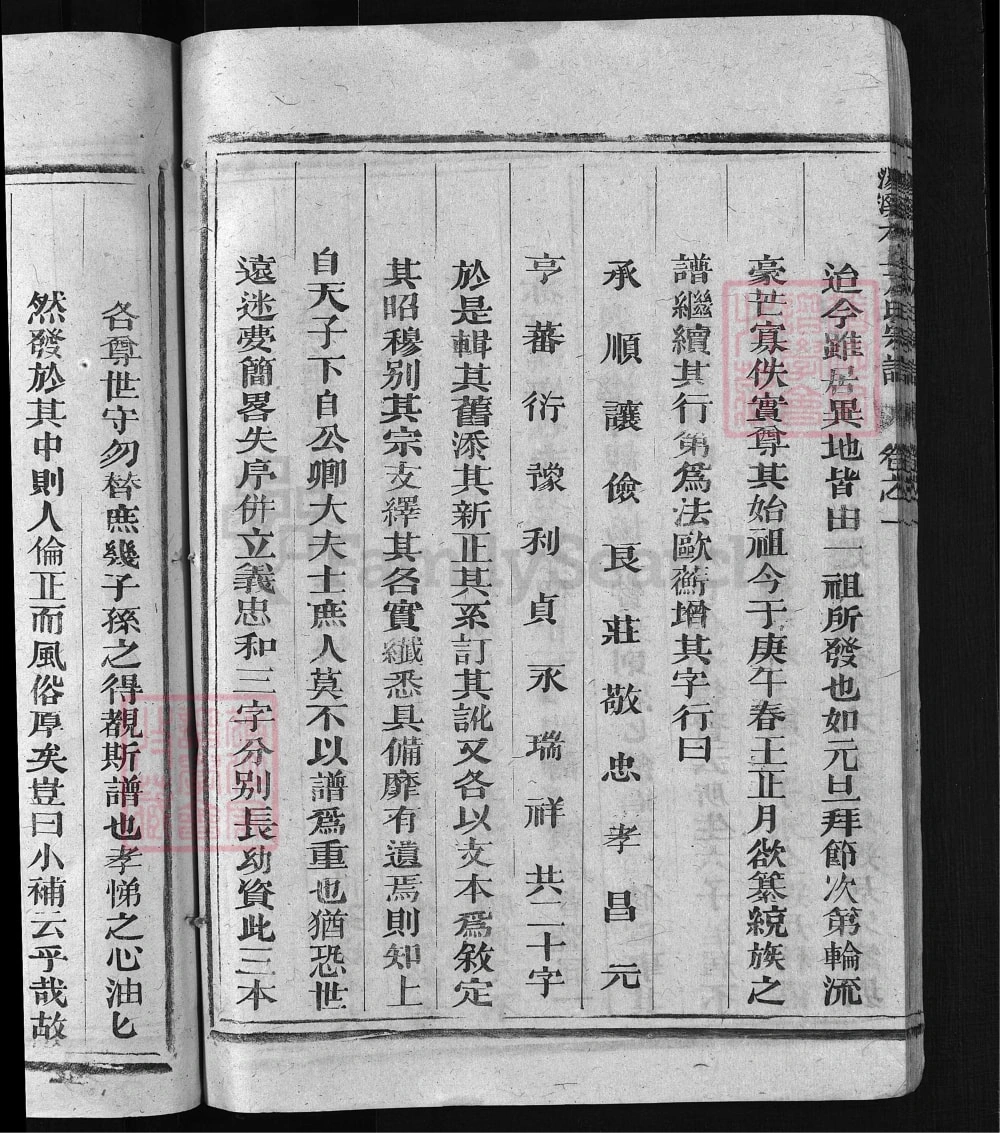 迨今雖居異地皆由一祖所發也如元旦拜節次第輪流
豪芒寡佚實尊其始祖今于庚午春王正月欲纂統族之
譜繼續其行第爲法歐蘇增其字行曰
承順讓儉良莊敬忠孝昌元
亨蕃衍豫利貞永瑞祥共二十字
於是輯其舊添其新正其系訂其訛又各以支本爲敘定
其昭穆別其宗支繹其名實纖悉具備靡有遺焉則知上
自天子下自公卿大夫士庶人莫不以譜爲重也猶恐世
遠迷夢簡畧失序併立義忠和三字分別長幼資此三本
各尊世守勿替庶幾子孫之得覩斯譜也孝悌之心油匕
然發於其中則人倫正而風俗厚矣豈曰小補云乎哉故
氏宗譜
卷之一
FamilySearch